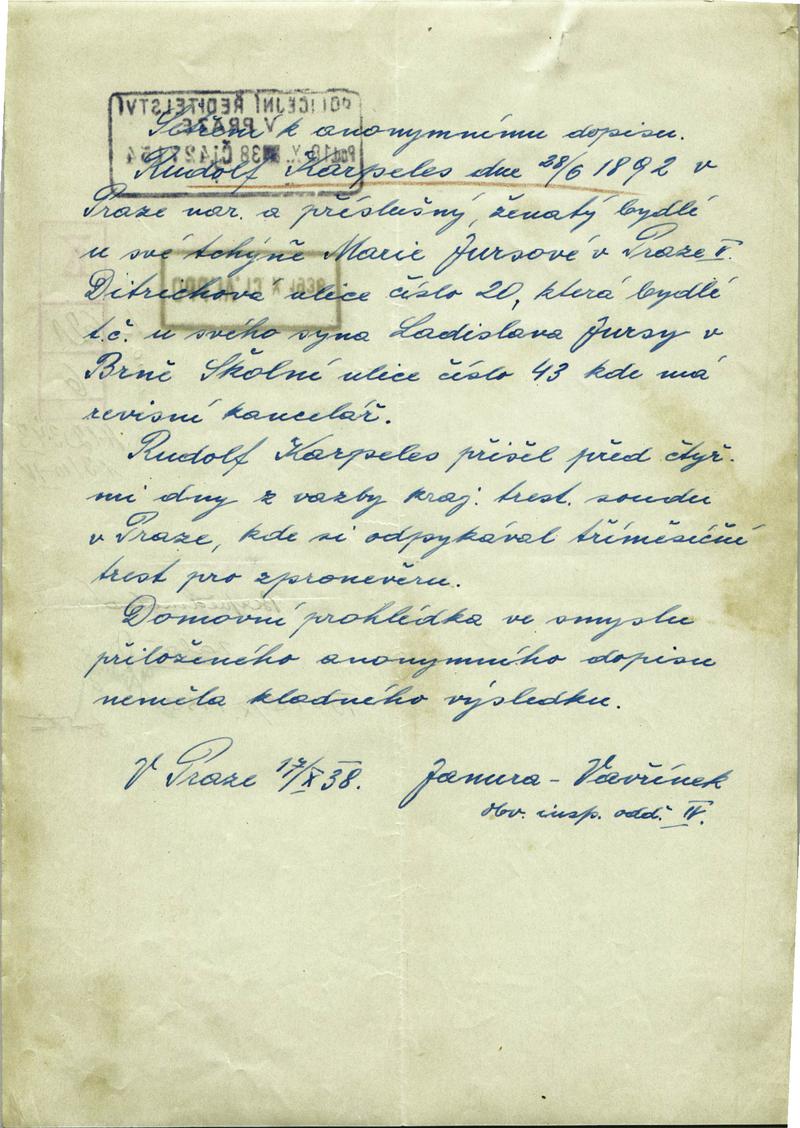 Šetření k anonymnímu dopisu.
Rudolf Karpeles dne 28/6 1892 v
Praze nar. a příslušný, ženatý bydlí
u své tchýně Marie Jursové v Praze V.
Ditrichova ulice číslo 20, která bydlí
t.č. u svého syna Ladislava Jursy v
Brně Školní ulice číslo 43 kde má
revisní kancelář.
Rudolf Karpeles přišel před čtyř-
mi dny z vazby kraj. trest. soudu
v Praze, kde si odpykával tříměsíční
trest pro zpronevěru.
Domovní prohlídka ve smyslu
přiloženého anonymního dopisu
neměla kladného výsledku.
V Praze 17/X 38. Janura - Vavřínek
obv. insp. odd. IV.
POLICEJNÍ ŘEDITELSTVÍ
V PRAZE